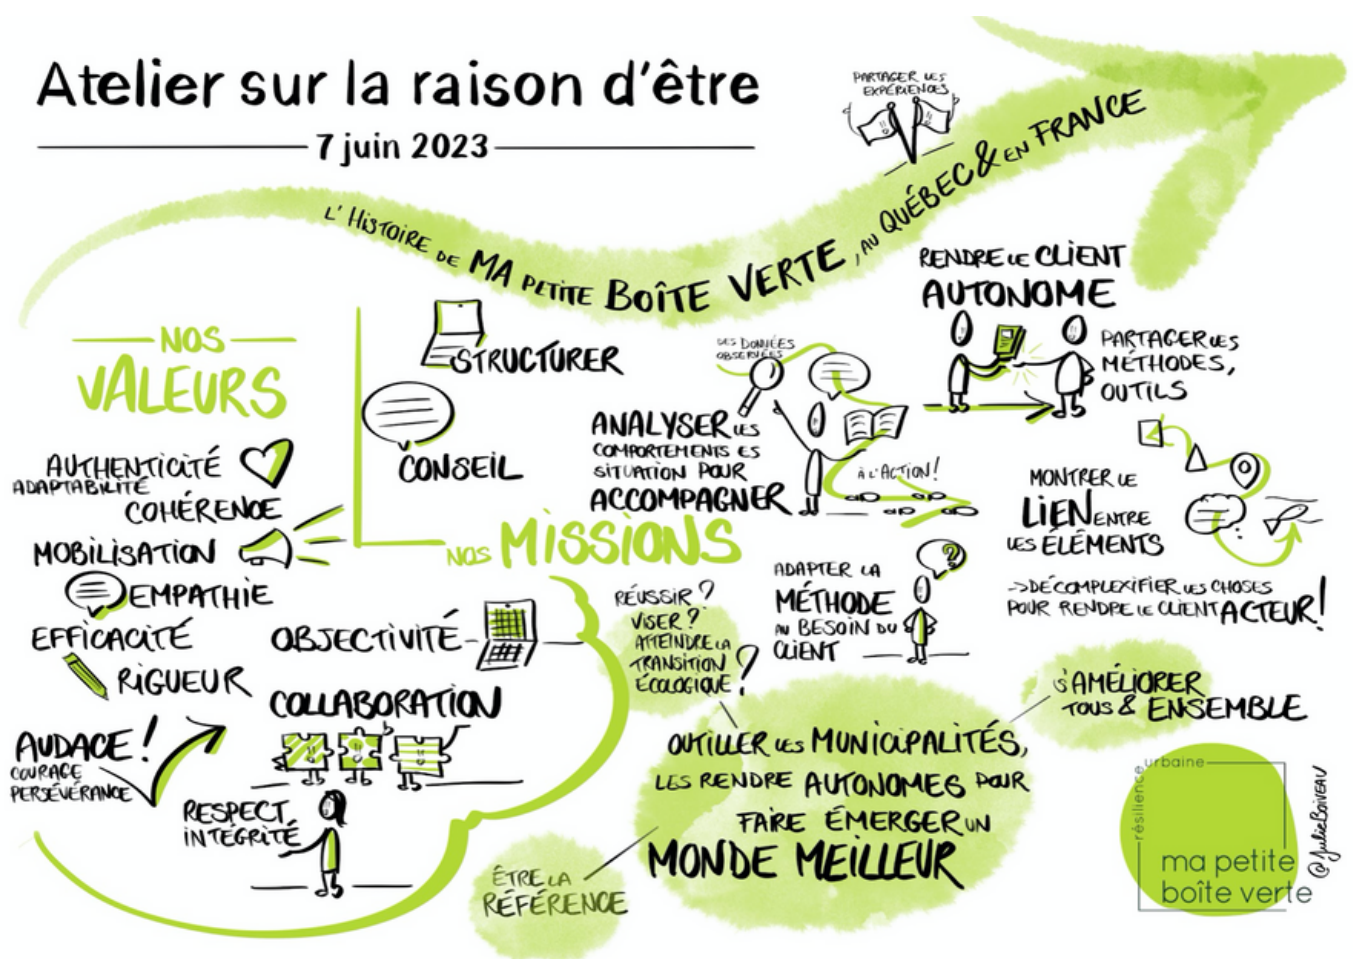 Atelier sur la raison d'être
7 juin 2023
PARTAGER LES
EXPÉRIENCES
L'HISTOIRE DE MA PETITE BOÎTE VERTE, AU QUÉBEC & EN FRANCE
NOS
VALEURS
AUTHENTICITÉ
ADAPTABILITÉ
COHÉRENCE
MOBILISATION
EMPATHIE
EFFICACITÉ
RIGUEUR
AUDACE!
COURAGE
PERSÉVÉRANCE
OBJECTIVITÉ
COLLABORATION
RESPECT
INTÉGRITÉ
STRUCTURER
CONSEIL
NOS MISSIONS
DES DONNÉES
OBSERVÉES
ANALYSER LES
COMPORTEMENTS ES
SITUATION POUR
ACCOMPAGNER
À L'ACTION!
RENDRE LE CLIENT
AUTONOME
PARTAGER LES
MÉTHODES,
OUTILS
MONTRER LE
LIEN ENTRE
LES ÉLÉMENTS
-> DÉCOMPLEXIFIER LES CHOSES
POUR RENDRE LE CLIENT ACTEUR!
ADAPTER LA
MÉTHODE
AU BESOIN DU
CLIENT
?
RÉUSSIR?
VISER?
ATTEINDRE LA
TRANSITION
ÉCOLOGIQUE?
OUTILLER LES MUNICIPALITÉS,
LES RENDRE AUTONOMES POUR
FAIRE ÉMERGER UN
MONDE MEILLEUR
S'AMÉLIORER
TOUS & ENSEMBLE
ÊTRE LA
RÉFÉRENCE
résilience urbaine
ma petite
boîte verte
@JulieBoiveau